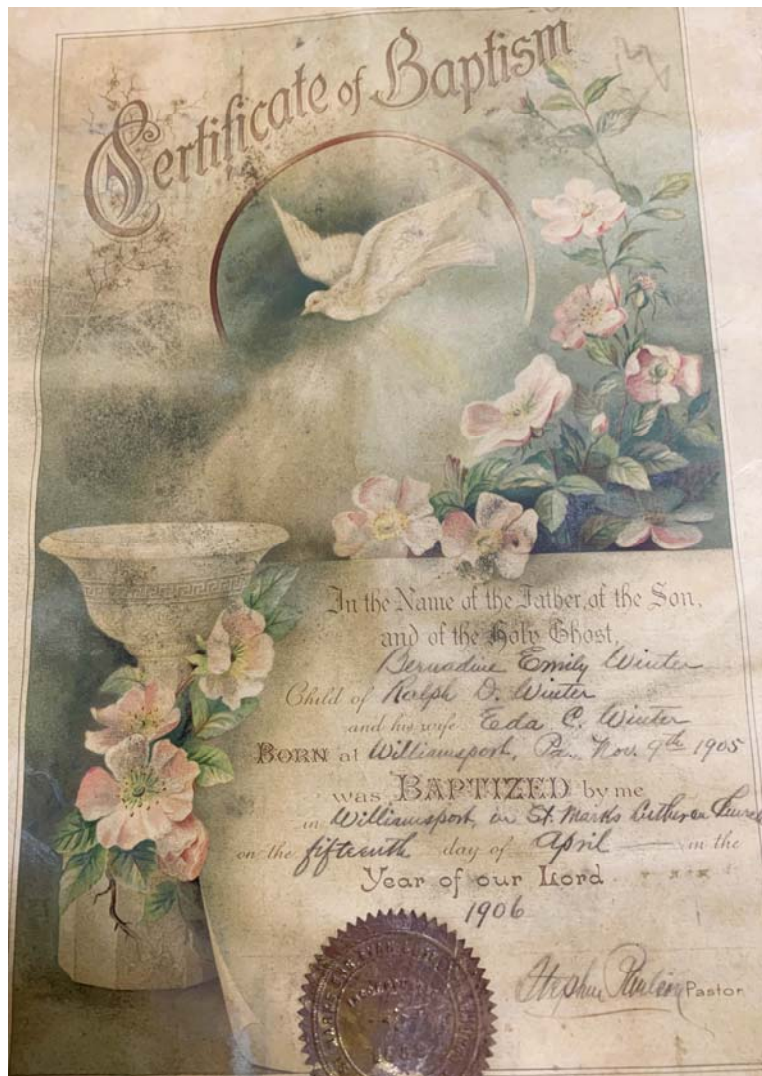 Certificate of Baptism
In the Name of the Father, of the Son,
and of the Holy Ghost,
Bernadine Emily Winter
Child of Ralph D. Winter
and his wife Eda C. Winter
BORN at Williamsport, Pa. Nov. 9th 1905
was BAPTIZED by me
in Williamsport, in St. Marks Lutheran Church
on the fifteenth day of April in the
Year of our Lord
1906
Stephen Pastor